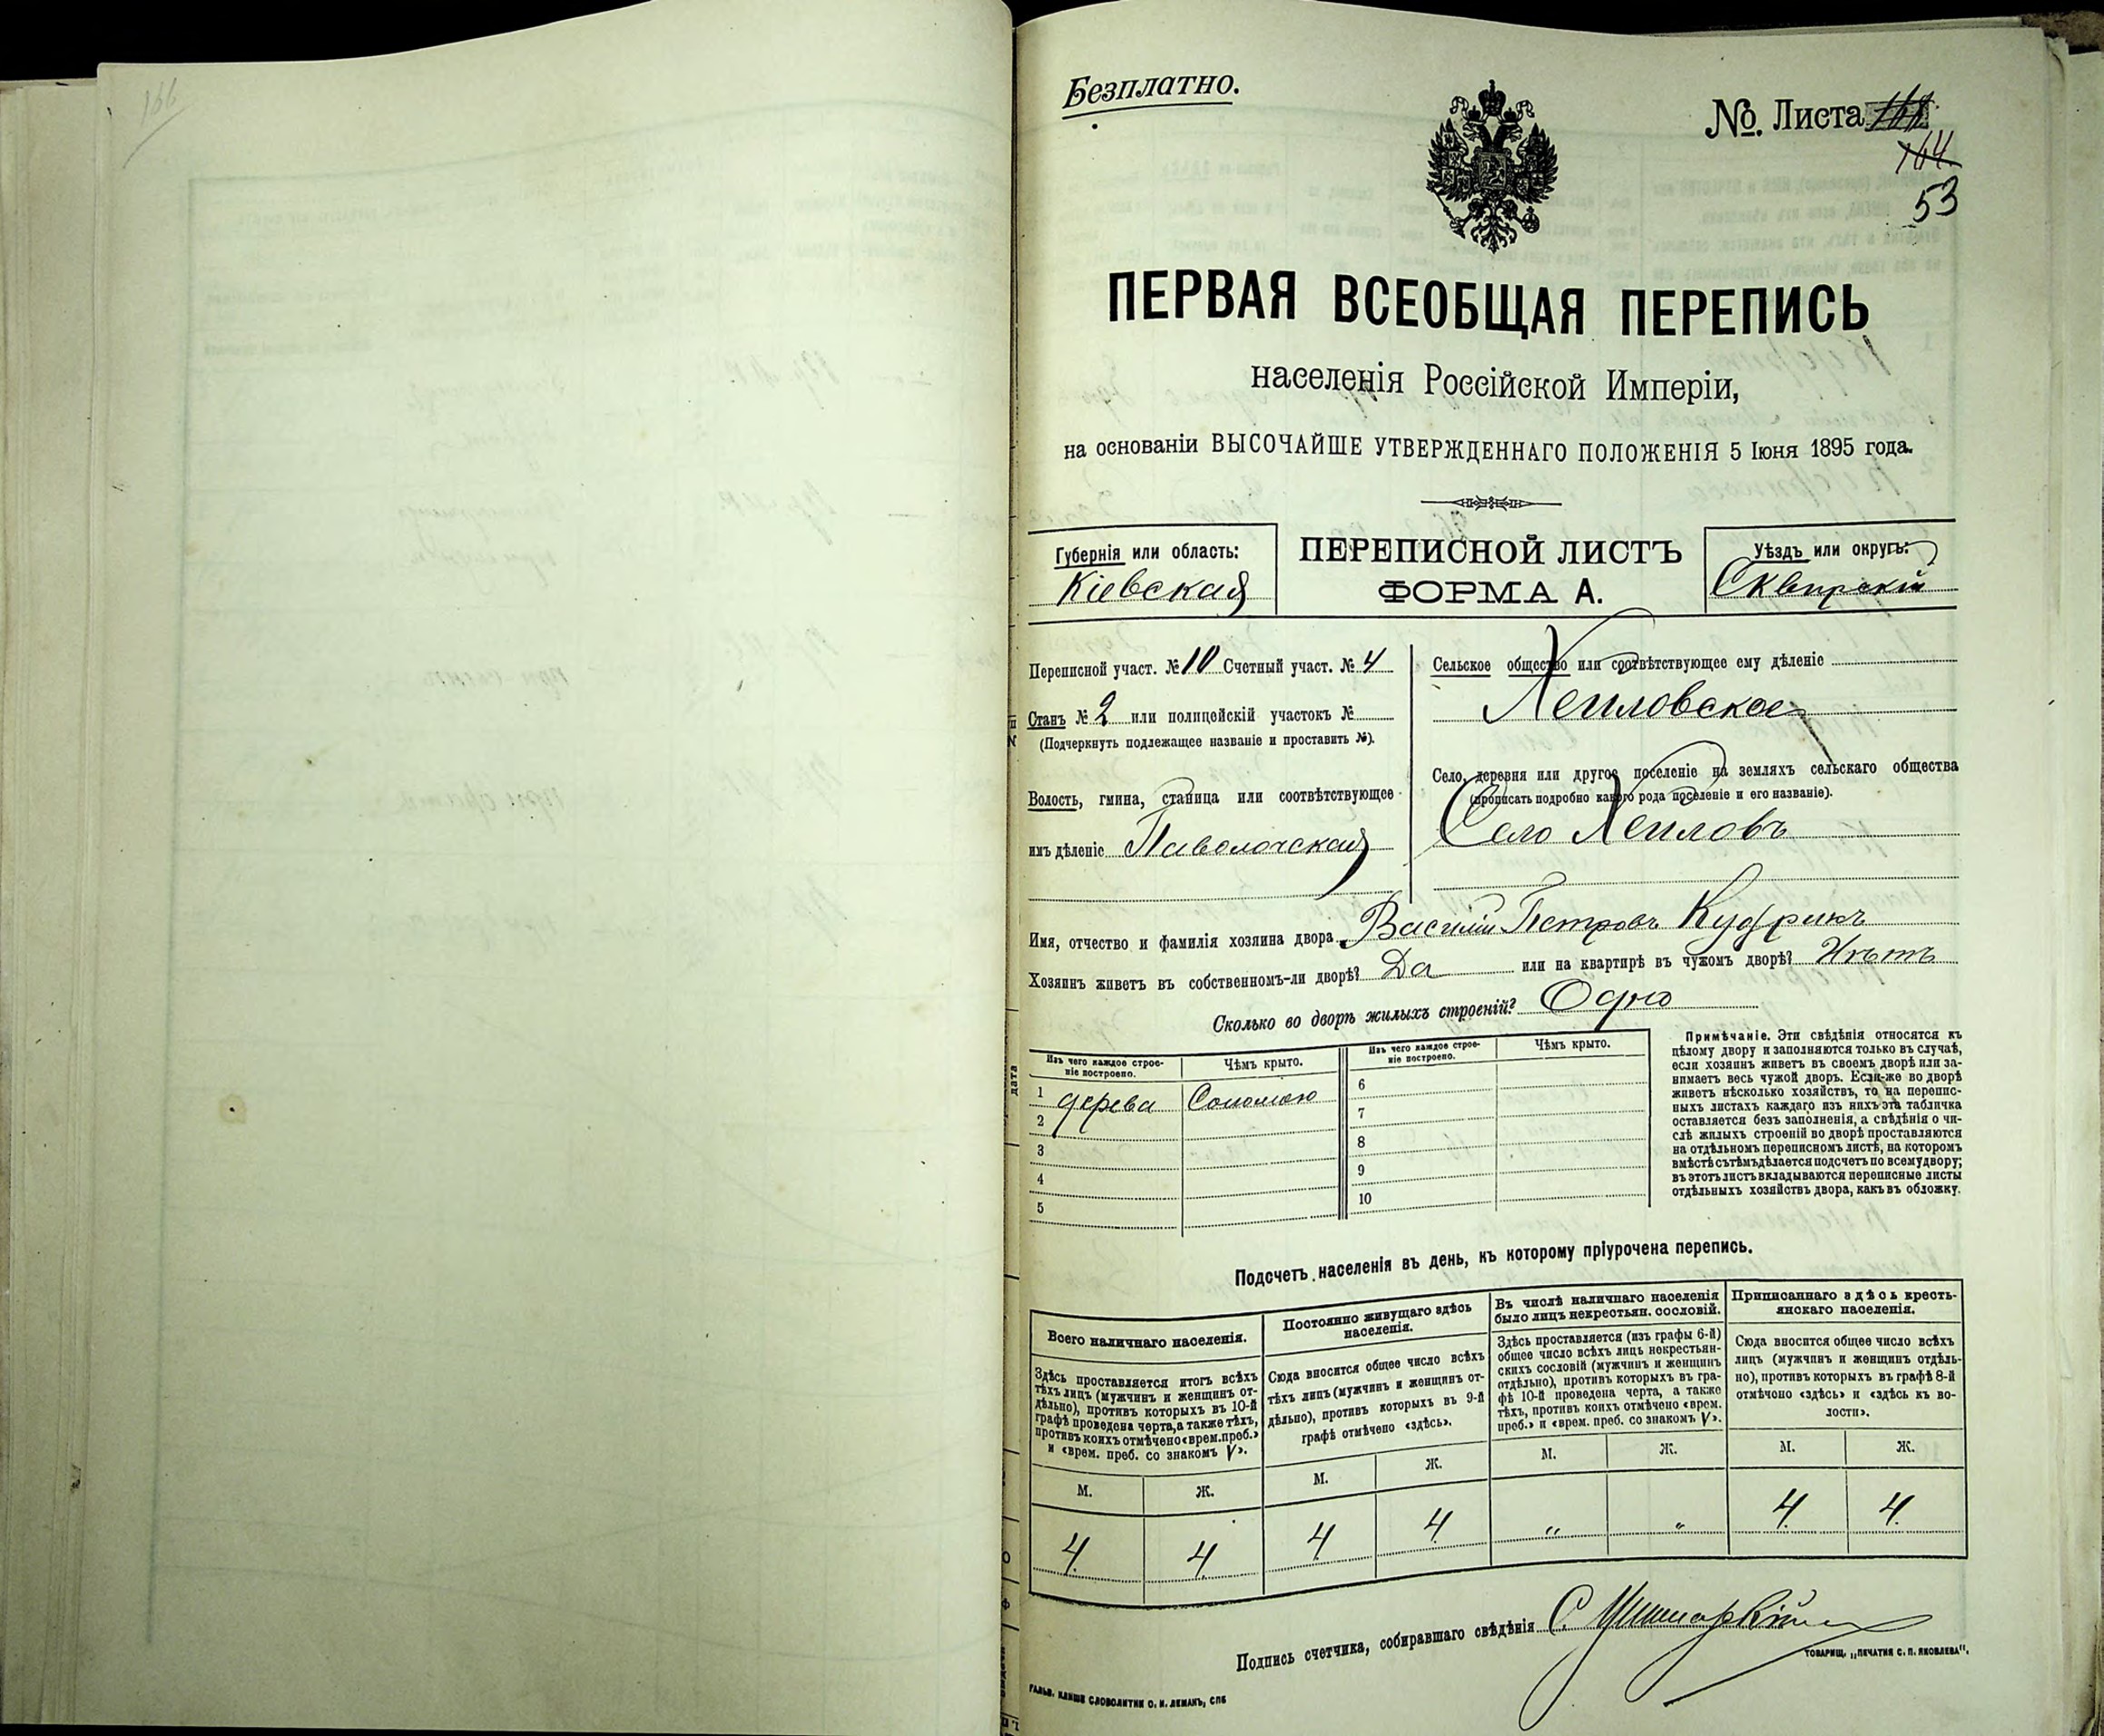 166
Безплатно.
№. Листа
164
53
ПЕРВАЯ ВСЕОБЩАЯ ПЕРЕПИСЬ
населенія Россійской Имперіи,
на основаніи ВЫСОЧАЙШЕ УТВЕРЖДЕННАГО ПОЛОЖЕНІЯ 5 Іюня 1895 года.
Губернія или область:
Кіевская
ПЕРЕПИСНОЙ ЛИСТЪ
ФОРМА А.
Уѣздъ или округъ:
Сквирскій
Переписной участ. № 10 Счетный участ. № 4
Станъ № 2 или полицейскій участокъ №
(Подчеркнуть подлежащее названіе и проставить №).
Волость, гмина, станица или соотвѣтствующее
имъ дѣленіе Паволочская
Сельское общество или соотвѣтствующее ему дѣленіе
Село, деревня или другое поселеніе на земляхъ сельскаго общества
(прописать подробно какого рода поселеніе и его названіе).
Село
Имя, отчество и фамилія хозяина двора Василій Петровъ Кудрикъ
Хозяинъ живетъ въ собственномъ-ли дворѣ? Да или на квартирѣ въ чужомъ дворѣ? Нѣтъ
Сколько во дворѣ жилыхъ строеній? Одно
Изъ чего каждое строе-
ніе построено.
Чѣмъ крыто.
1 дерева Соломою
2
3
4
5
Изъ чего каждое строе-
ніе построено.
Чѣмъ крыто.
6
7
8
9
10
Примѣчаніе. Эти свѣдѣнія относятся къ
цѣлому двору и заполняются только въ случаѣ,
если хозяинъ живетъ въ своемъ дворѣ или за-
нимаетъ весь чужой дворъ. Если-же во дворѣ
живетъ нѣсколько хозяйствъ, то на перепис-
ныхъ листахъ каждаго изъ нихъ эта табличка
оставляется безъ заполненія, а свѣдѣнія о чи-
слѣ жилыхъ строеній во дворѣ проставляются
на отдѣльномъ переписномъ листѣ, на которомъ
вмѣстѣ съ тѣмъ дѣлается подсчетъ по всему двору;
въ этотъ листъ вкладываются переписные листы
отдѣльныхъ хозяйствъ двора, какъ въ обложку.
Подсчетъ населенія въ день, къ которому пріурочена перепись.
Всего наличнаго населенія.
Здѣсь проставляется итогъ всѣхъ
тѣхъ лицъ (мужчинъ и женщинъ от-
дѣльно), противъ которыхъ въ 10-й
графѣ проведена черта, а также тѣхъ,
противъ коихъ отмѣчено «врем. преб.»
и «врем. преб. со знакомъ V».
М. Ж.
4. 4.
Постоянно живущаго здѣсь
населенія.
Сюда вносится общее число всѣхъ
тѣхъ лицъ (мужчинъ и женщинъ от-
дѣльно), противъ которыхъ въ 9-й
графѣ отмѣчено «здѣсь».
М. Ж.
4 4.
Въ числѣ наличнаго населенія
было лицъ некрестьян. сословій.
Здѣсь проставляется (изъ графы 6-й)
общее число всѣхъ лицъ некрестьян-
скихъ сословій (мужчинъ и женщинъ
отдѣльно), противъ которыхъ въ гра-
фѣ 10-й проведена черта, а также
тѣхъ, противъ коихъ отмѣчено «врем.
преб.» и «врем. преб. со знакомъ V».
М. Ж.
" "
Приписаннаго здѣсь кресть-
янскаго населенія.
Сюда вносится общее число всѣхъ
лицъ (мужчинъ и женщинъ отдѣль-
но), противъ которыхъ въ графѣ 8-й
отмѣчено «здѣсь» и «здѣсь въ во-
лости».
М. Ж.
4. 4.
Подпись счетчика, собиравшаго свѣдѣнія С.
ГАЛЬВ. КЛИШЕ СЛОВОЛИТНИ О. И. ЛЕМАНЪ, СПБ
ТОВАРИЩ. „ПЕЧАТНЯ С. П. ЯКОВЛЕВА".